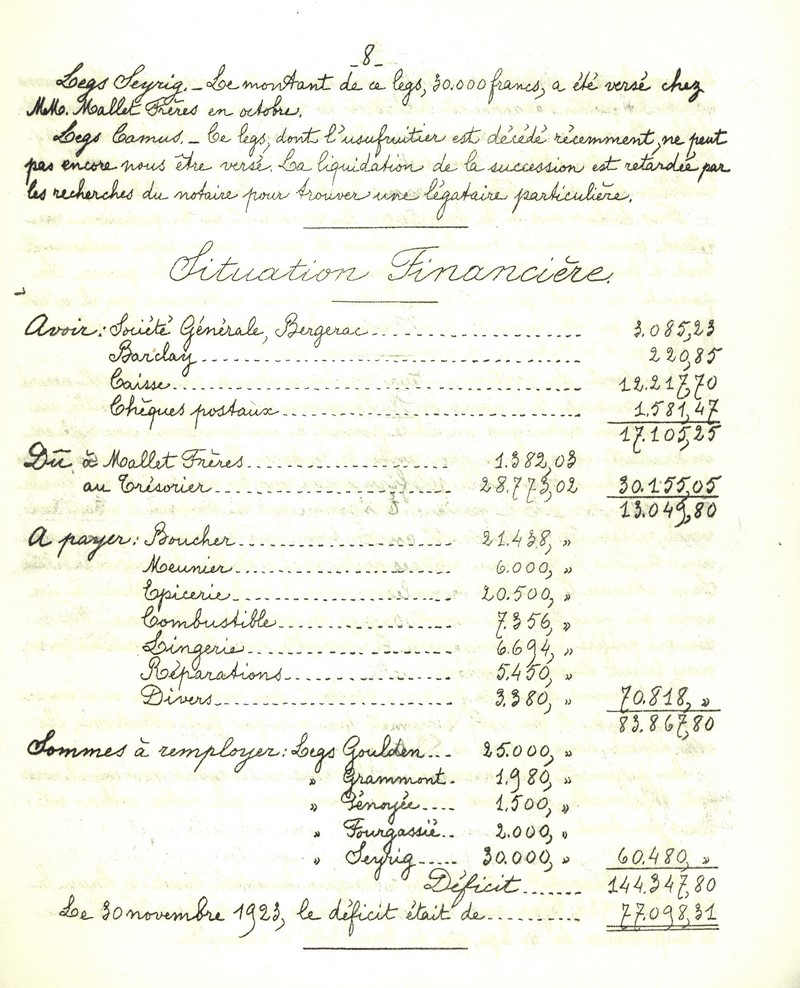 _8_
Legs Seyrig._ Le montant de ce legs, 30.000 francs, a été versé chez
MM. Mallet Frères en octobre.
Legs Camus._ Ce legs, dont l'usufruitier est décédé récemment, ne peut
pas encore nous être versé. La liquidation de la succession est retardée par
les recherches du notaire pour trouver une légataire particulière.
Situation Financière.
Avoir: Société Générale, Bergerac 3.085,23
Barclay 220,85
Caisse 12.217,70
Chèques postaux 1.581,47
17.105,25
Dû à Mallet Frères 1.382,03
au Trésorier 28.773,02 30.155,05
13.049,80
A payer: Boucher 21.438, »
Meunier 6.000, »
Epicerie 20.500, »
Combustible 7.356, »
Lingerie 6.694, »
Réparations 5.450, »
Divers 3.380, » 70.818, »
83.867,80
Sommes à remployer: Legs Goulden 25.000, »
» Grammont 1.980, »
» Génoyée 1.500, »
» Fourgassié 2.000, »
» Seyrig 30.000, » 60.480, »
Déficit 144.347,80
Le 30 novembre 1923, le déficit était de 77.098,31